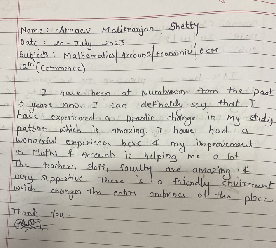 Name: Arnav Malikanjan Shetty
Date: 20 - July - 2023
Subject: Mathematics / Accounts / Economics / OCM
12th (Commerce)
I have been at from the past
2 years now. I can definitely say that I
have experienced a drastic change in my study
pattern which is amazing. I have had a
wonderful experience here & my improvement
in Maths & Accounts is helping me a lot.
The teachers, staff, faculty are amazing &
very supportive. There is a friendly enviroment
which changes the entire ambience of the place
Thank you